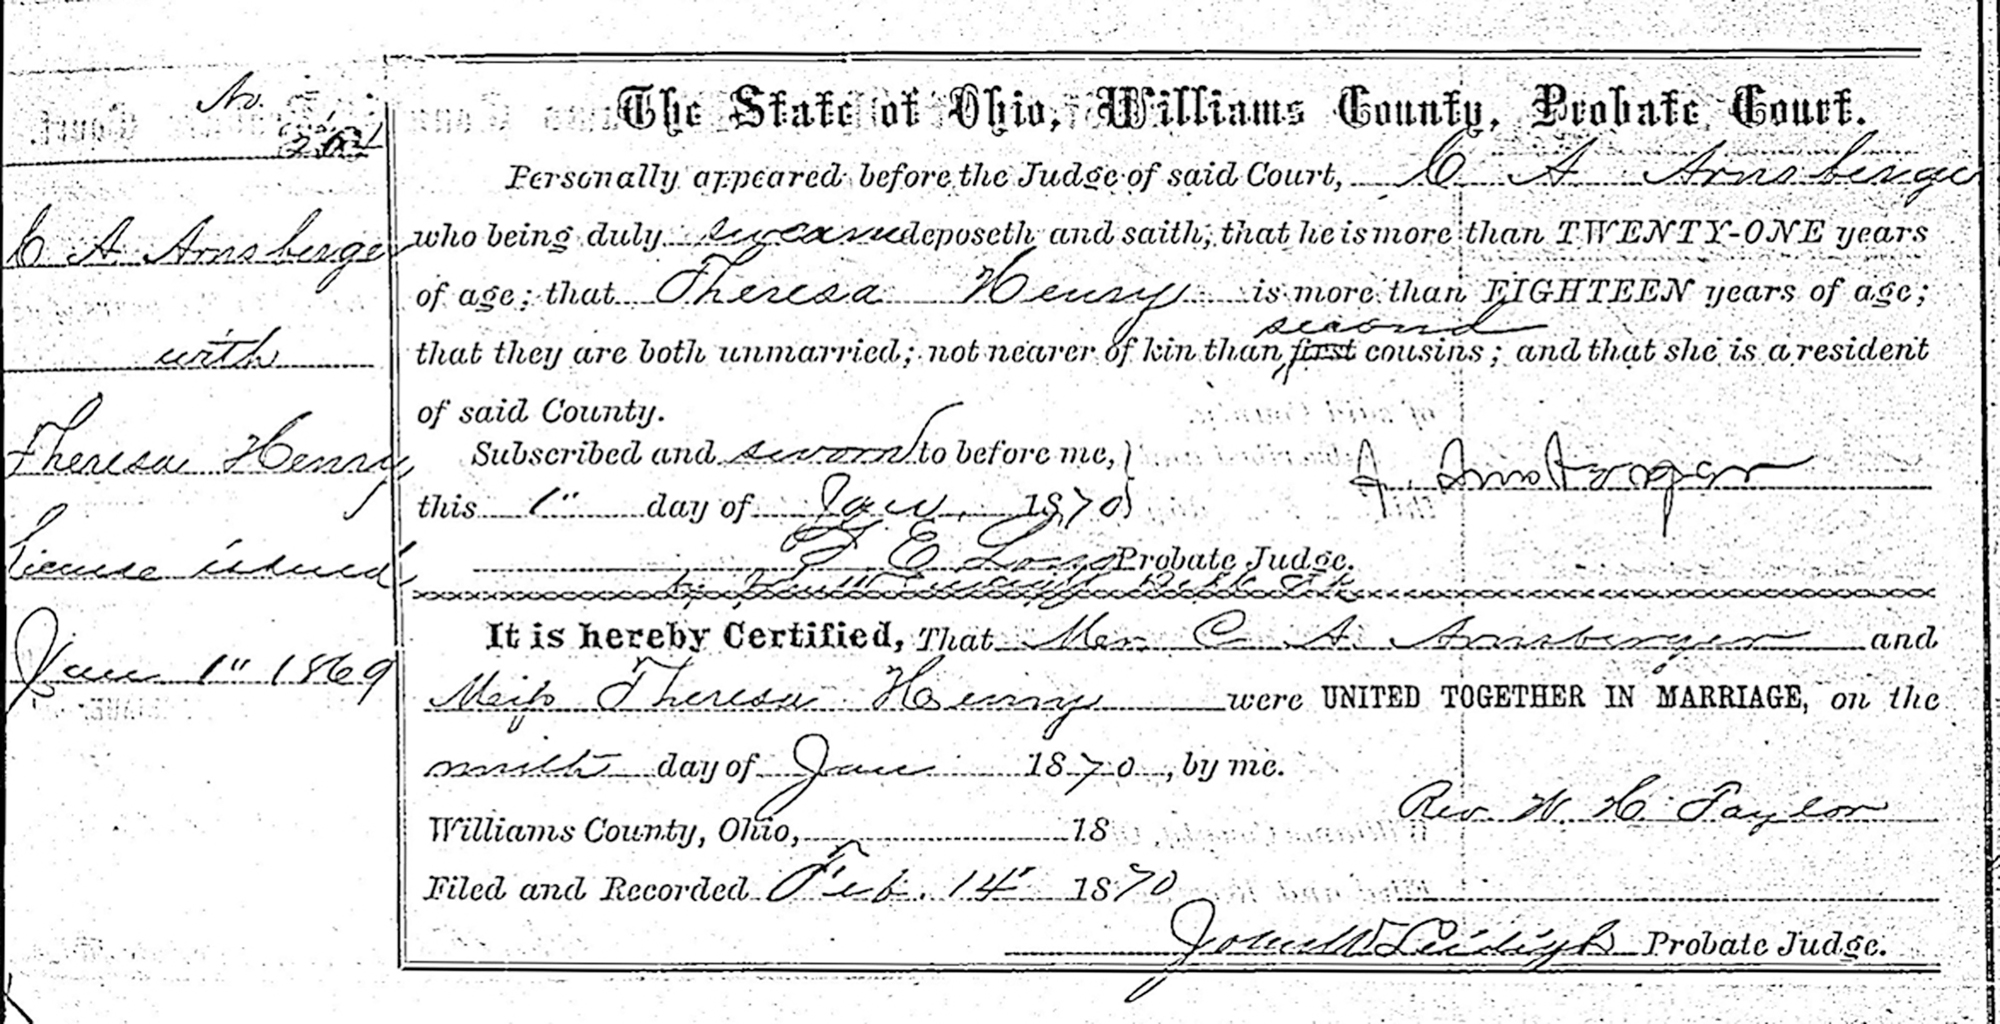 No.
C A Arnsberger
with
Theresa Henry
License issued
Jan 1" 1869
The State of Ohio, Williams County, Probate Court.
Personally appeared before the Judge of said Court, C A Arnsberger
who being duly sworn deposeth and saith, that he is more than TWENTY-ONE years
of age; that Theresa Henry is more than EIGHTEEN years of age;
second
that they are both unmarried; not nearer of kin than first cousins; and that she is a resident
of said County.
Subscribed and sworn to before me,
this 1" day of Jan. 1870
A. Arnsberger
F E Long Probate Judge.
by
It is hereby Certified, That Mr. C A. Arnsberger and
Miss Theresa Henry were UNITED TOGETHER IN MARRIAGE, on the
ninth day of Jan 1870, by me.
Rev. W. H. Taylor
Williams County, Ohio, 18
Filed and Recorded Feb. 14" 1870
John W Leidigh Probate Judge.